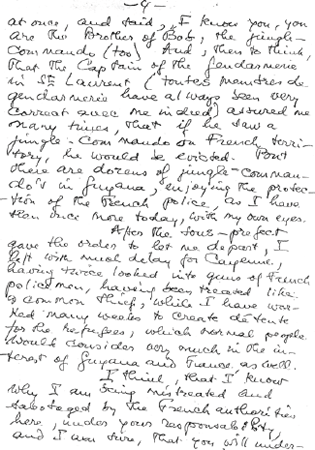 - 4 -
at once, and said, I know you, you
are the Brother of Bob, the jungle-
Commando (too) And, then to think,
that the Captain of the Gendarmerie
in St Laurent (toutes membres de
gendarmerie have always been very
correct avec me indeed) assured me
many times, that if he saw a
jungle-Commando on French terri-
tory, he would be evicted. But
there are dozens of jungle-comman-
do's in Guyana, enjoying the protec-
tion of the French police, as I have
seen once more today, with my own eyes.
After the sous-prefect
gave the order to let me depart, I
left with much delay for Cayenne,
having twice looked into guns of French
policemen, having been treated like
a common thief, while I have wor-
ked many weeks to create détente
for the Refugees, which normal people
would consider very much in the in-
terest of Guyana and France as well.
I think, that I know
why I am being mistreated and
sabotaged by the French authorities
here, under your responsability,
and I am sure, that you will under-